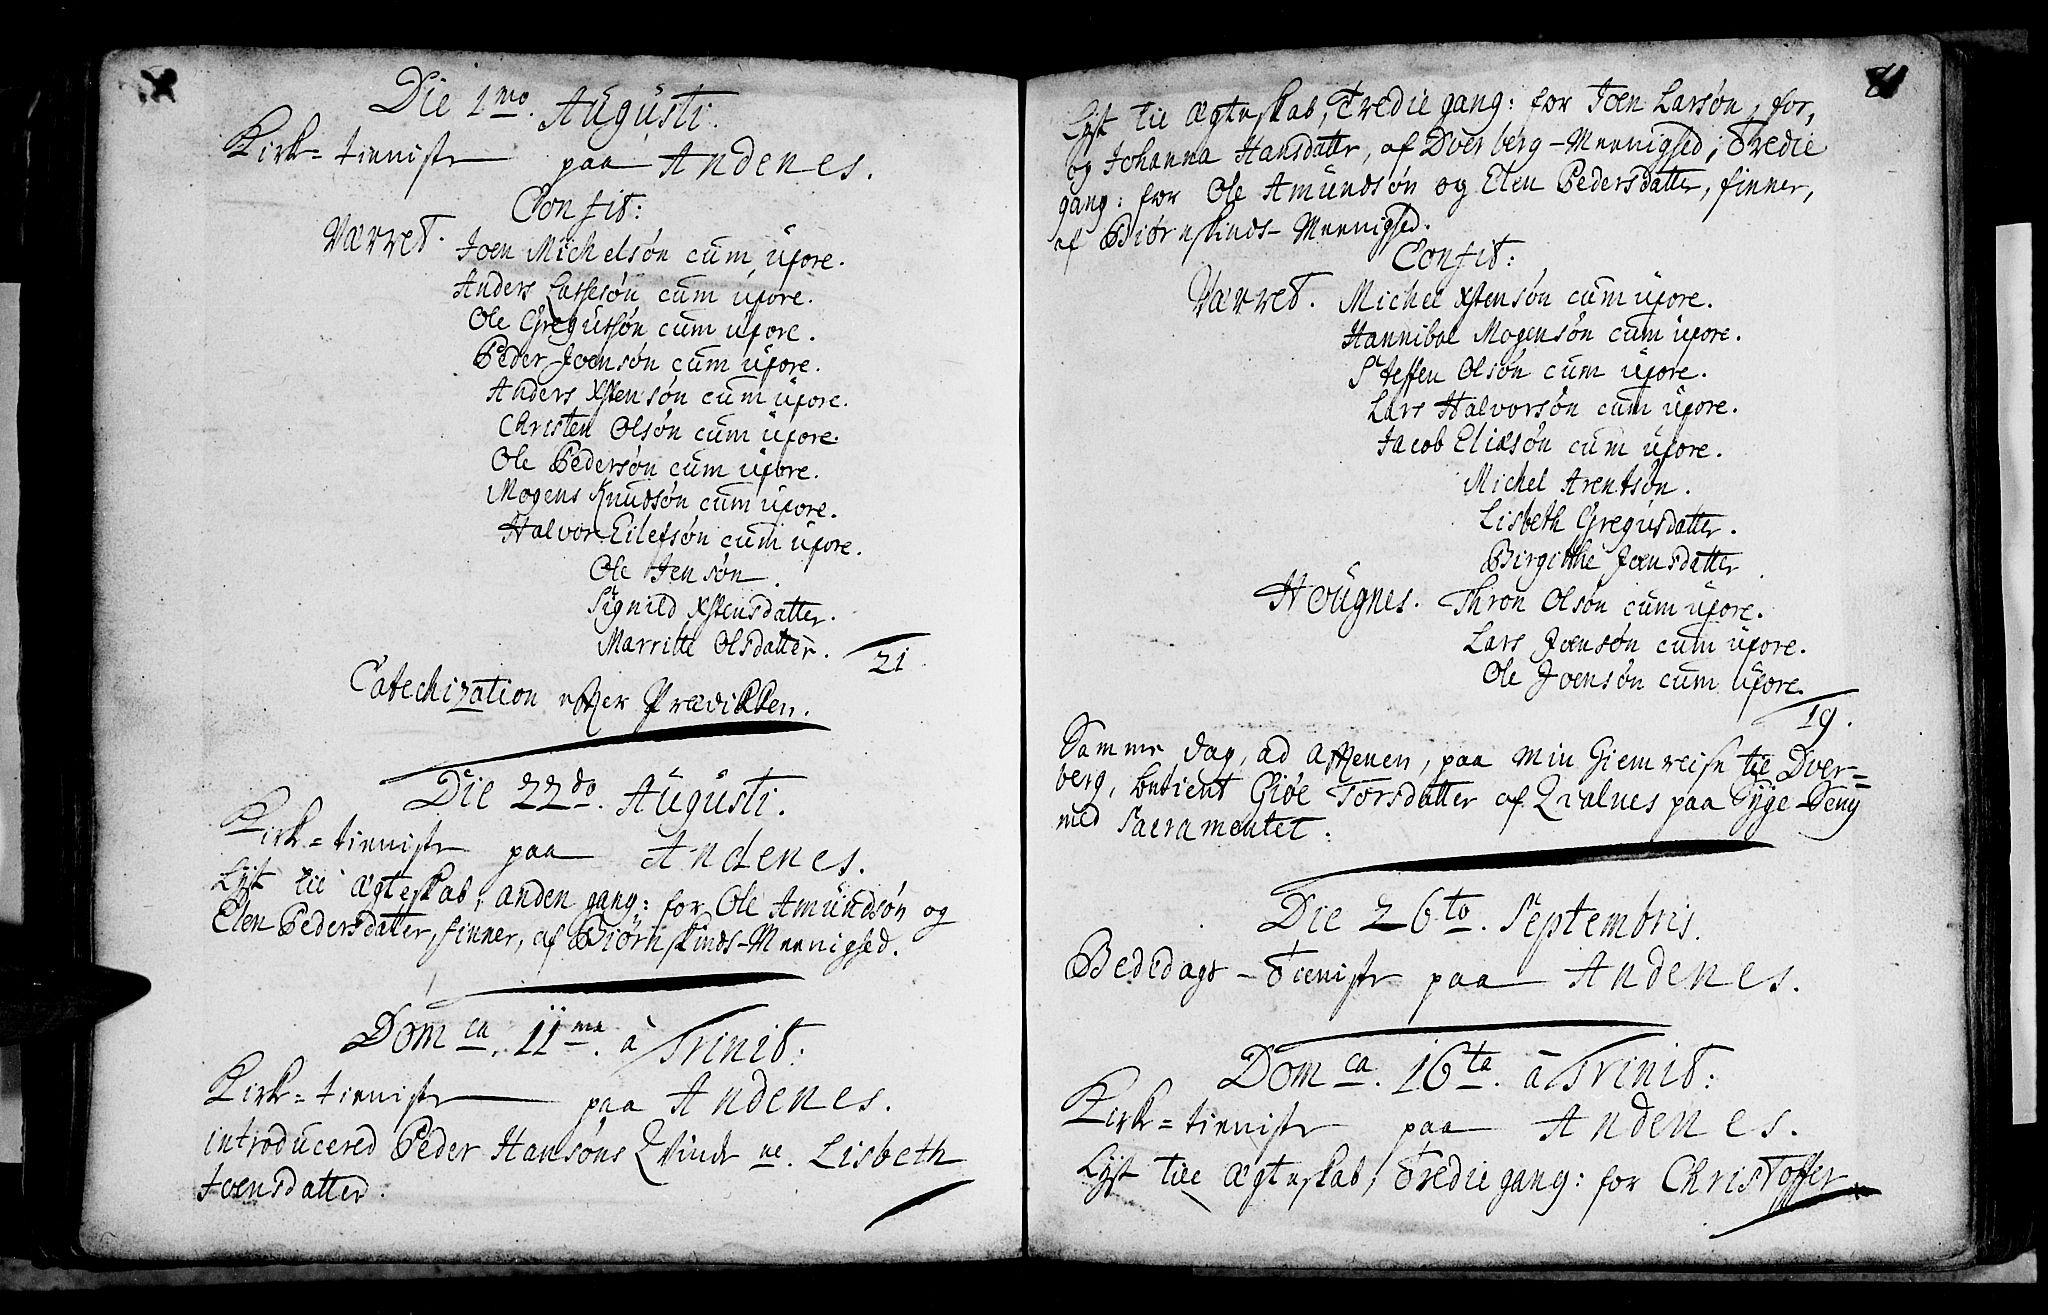 Die 1mo. Augusti.
Kirk=tieniste paa Andenes.
Confit:
Værret. Joen Michelsøn cum uxore.
Anders Lassesøn cum uxore.
Ole Gregussøn cum uxore.
Peder Joensøn cum uxore.
Anders Xstensøn cum uxore.
Christen Olsøn cum uxore.
Ole Pedersøn cum uxore.
Mogens Knudsøn cum uxore.
Halvor Eilefsøn cum uxore.
Ole Jensøn.
Signild Xstensdatter.
Marritte Olsdatter.
21
Catechization efter Prædikken.
Die 22do. Augusti.
Kirk=tieniste paa Andenes.
Lyst til Ægteskab, anden gang: for Ole Amundsøn og
Elen Pedersdatter, finner, af Biørnskinds-Meenighed.
Domca. 11ma. à Trinit:
Kirk=tieniste paa Andenes.
introducered Peder Hansøns Qvinde ne. Lisbeth
Joensdatter.
81
Lyst til Ægteskab, Tredie gang: for Joen Larsøn,
og Johanna Hansdatter, af Dverberg-Meenighed; Tredie
gang: for Ole Amundsøn og Elen Pedersdatter, finner,
af Biørnskinds-Meenighed.
Confit:
Værret. Michel Xstensøn cum uxore.
Hannibal Mogensøn cum uxore.
Steffen Olsøn cum uxore.
Lars Halvorsøn cum uxore.
Jacob Eliæsøn cum uxore.
Michel Arentsøn.
Lisbeth Gregusdatter.
Birgitthe Joensdatter
Hougnes. Thron Olsøn cum uxore.
Lars Joensøn cum uxore.
Ole Joensøn cum uxore.
19.
Samme Dag, ad Aftenen, paa min Hiemreise til Dver=
berg, betient Giøe Torsdatter af Qvalnes paa Syge-Seng
med Sacramentet.
Die 26to. Septembris.
Bededags-Tieniste paa Andenes.
Domca. 16ta. à Trinit:
Kirk=tieniste paa Andenes.
Lyst till Ægteskab, Tredie gang: for Christoffer